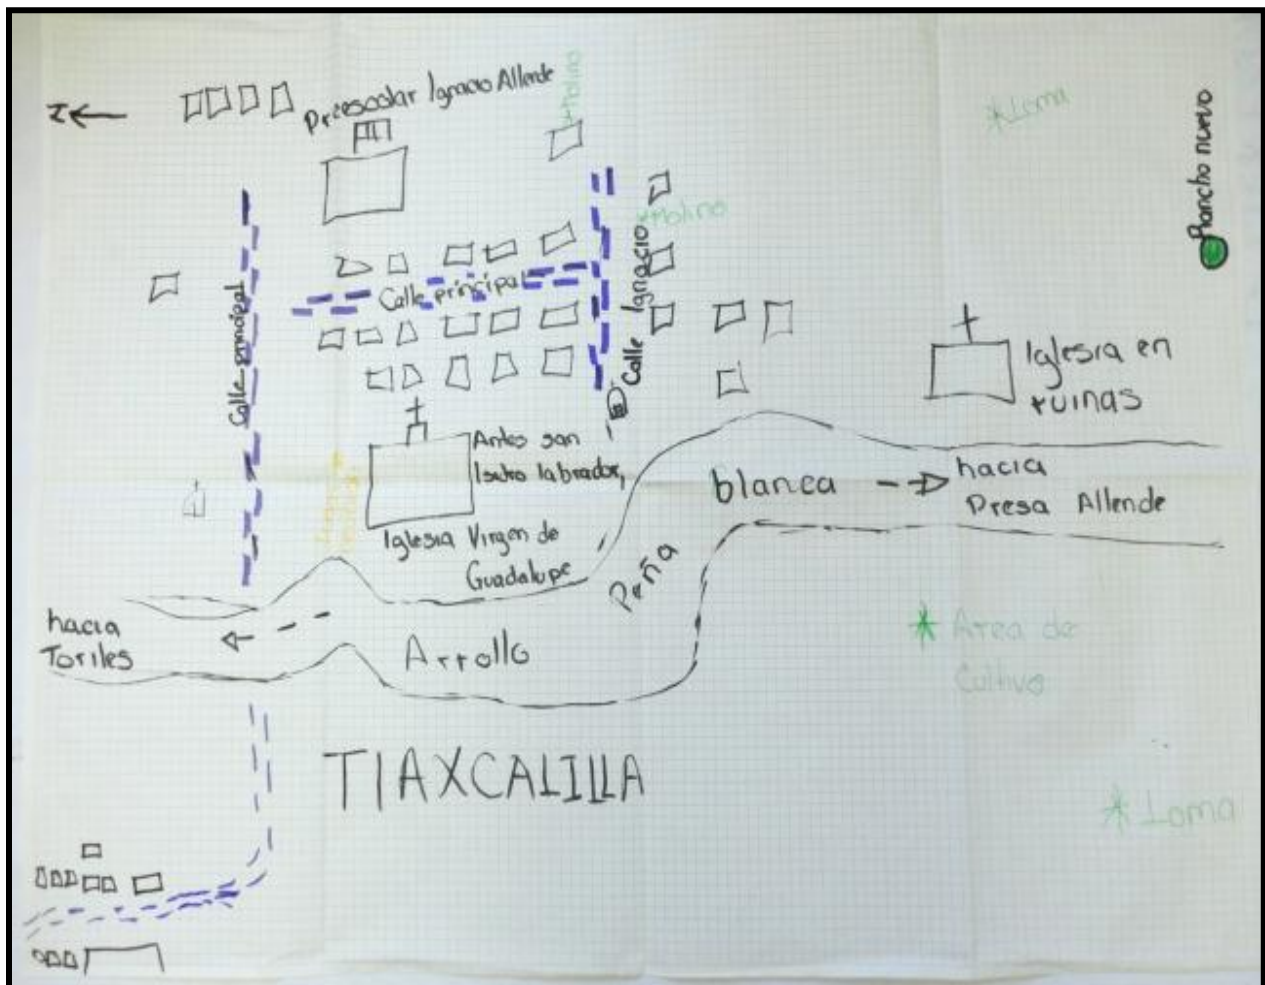 N
Preescolar Ignacio Allende
Molino
Loma
Rancho nuevo
Molino
Calle principal
Calle principal
Calle Ignacio
Iglesia en
ruinas
Antes san
Isidro labrador,
Iglesia Virgen de
Guadalupe
blanca
hacia
Presa Allende
Peña
hacia
Toriles
Arrollo
Area de
Cultivo
TlAXCALILLA
Loma